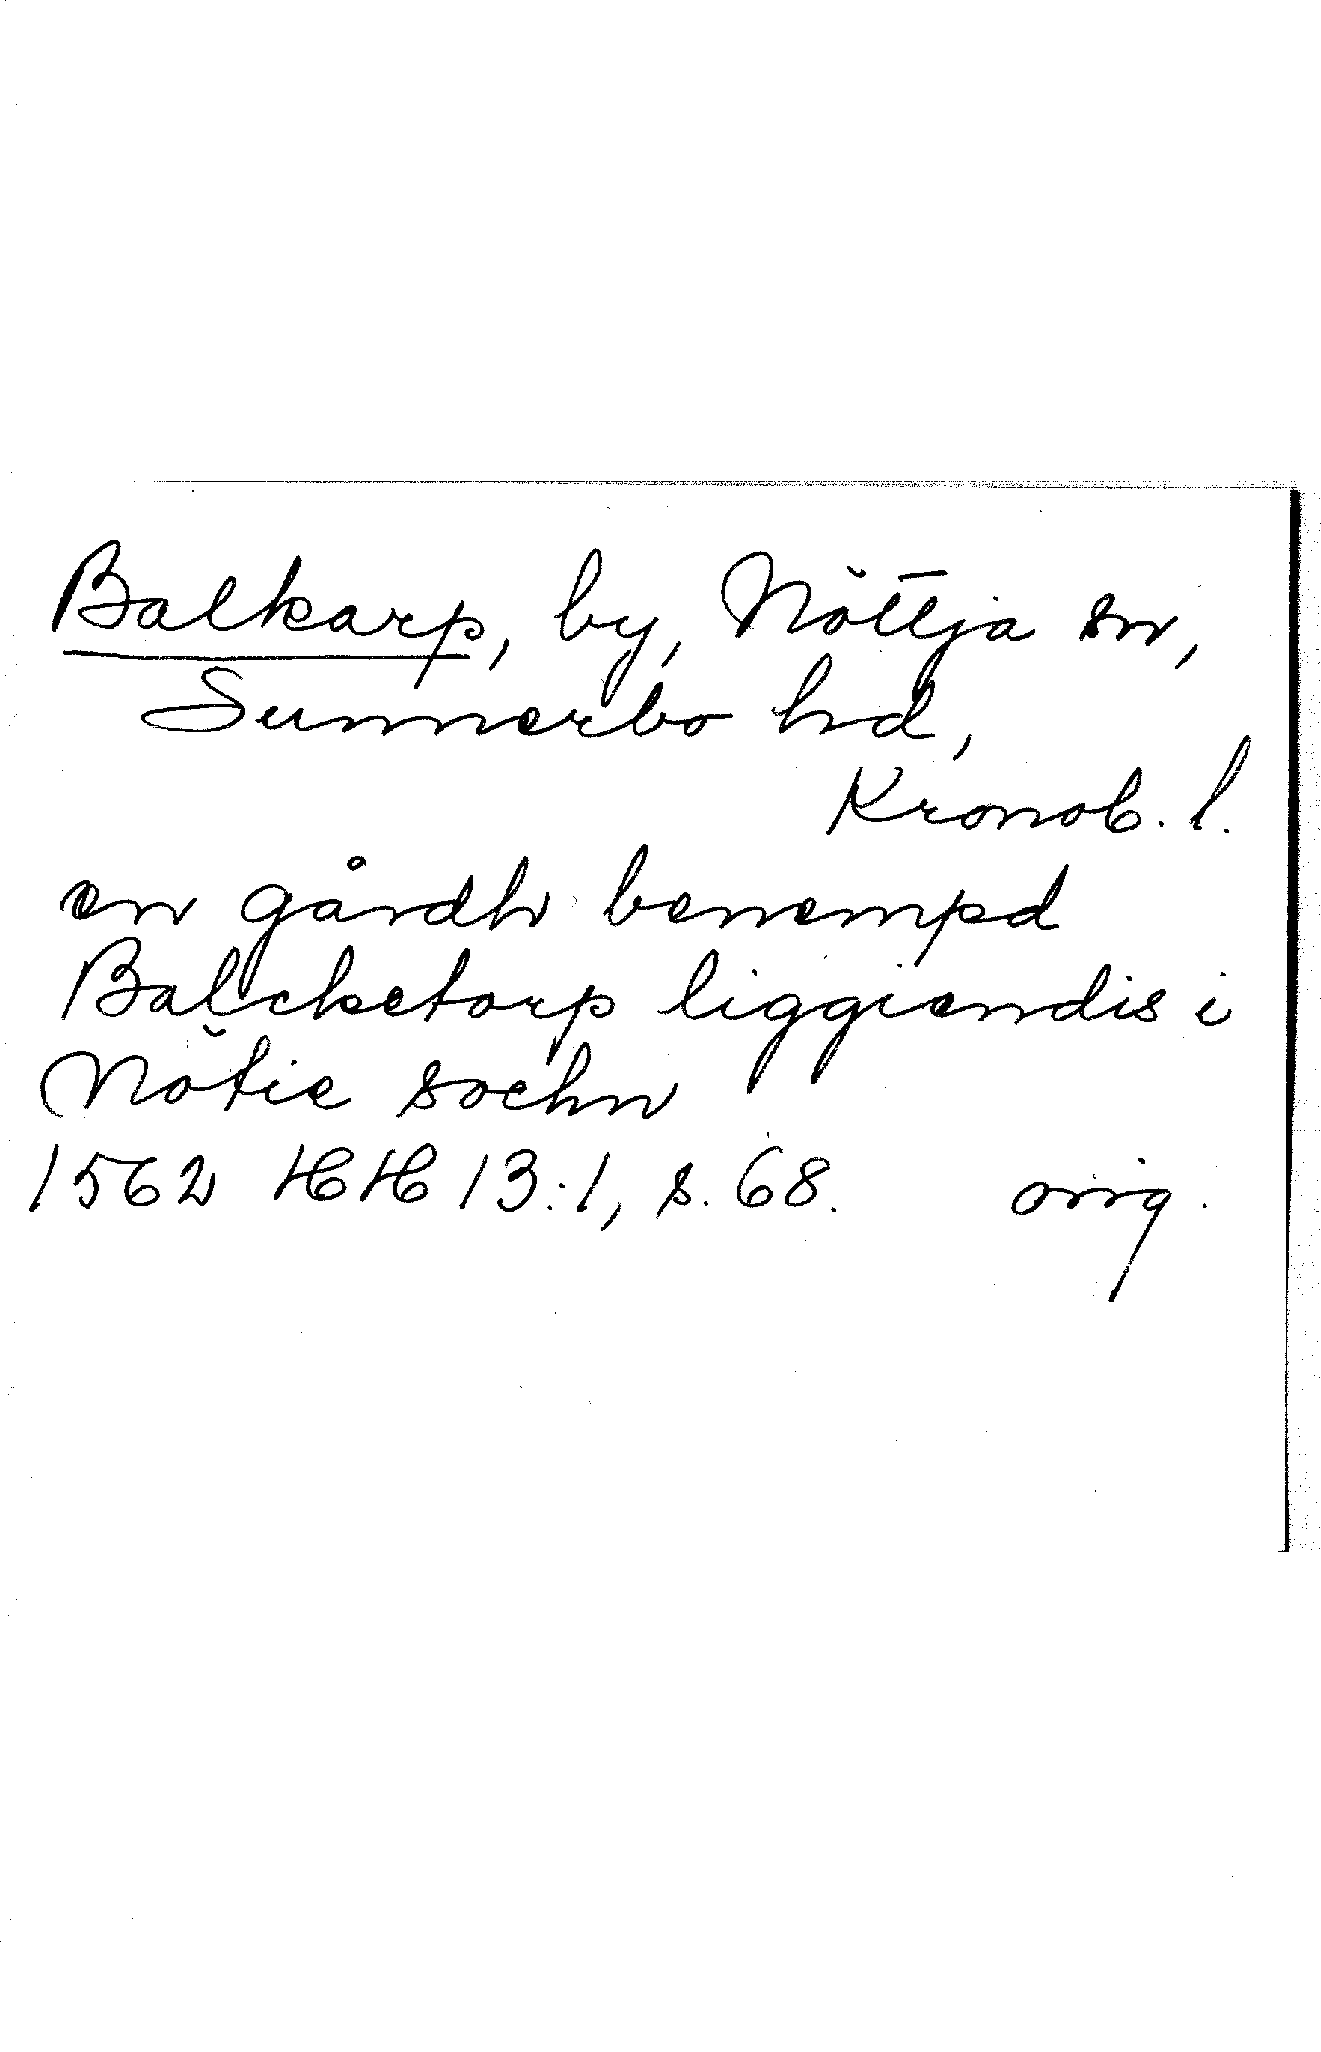 Balkarp, by, Nöttja sn,
Sunnerbo hd,
Kronob. l.
en gårdh benempd
Balcketorp liggiendis i
Nötie sochn
1562 HH 13:1, s. 68. orig.